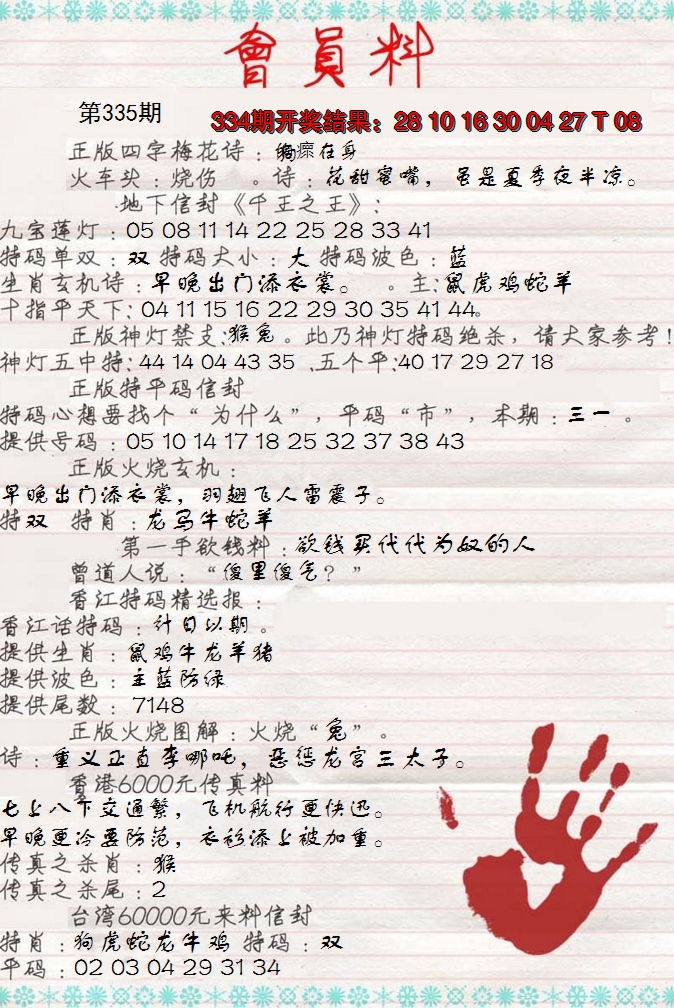 會員料
第335期
334期开奖结果：28 10 16 30 04 27 T 08
正版四字梅花诗：瘝在身
火车头：烧伤 。诗：花甜蜜嘴，虽是夏季夜半凉。
地下信封《千王之王》：
九宝莲灯：05 08 11 14 22 25 28 33 41
特码单双：双 特码大小：大 特码波色：蓝
生肖玄机诗：早晚出门添衣裳。 。主：鼠虎鸡蛇羊
十指平天下：04 11 15 16 22 29 30 35 41 44。
正版神灯禁支：猴兔。此乃神灯特码绝杀，请大家参考！
神灯五中特：44 14 04 43 35 .五个平：40 17 29 27 18
正版特平码信封
特码心想要找个“为什么”，平码“市”，本期：三一 。
提供号码：05 10 14 17 18 25 32 37 38 43
正版火烧玄机：
早晚出门添衣裳，羽翅飞人雷震子。
特双 特肖：龙马牛蛇羊
第一手欲钱料：欲钱买代代为奴的人
曾道人说：“傻里傻气？”
香江特码精选报：
香江话特码：计日以期。
提供生肖：鼠鸡牛龙羊猪
提供波色：主蓝防绿
提供尾数：7148
正版火烧图解：火烧“兔”。
诗：重义正直李哪吒，恶惩龙宫三太子。
香港6000元传真料
七上八下交通繁，飞机航行更快迅。
早晚更冷要防范，衣衫添上被加重。
传真之杀肖：猴
传真之杀尾：2
台湾60000元来料信封
特肖：狗虎蛇龙牛鸡 特码：双
平码：02 03 04 29 31 34